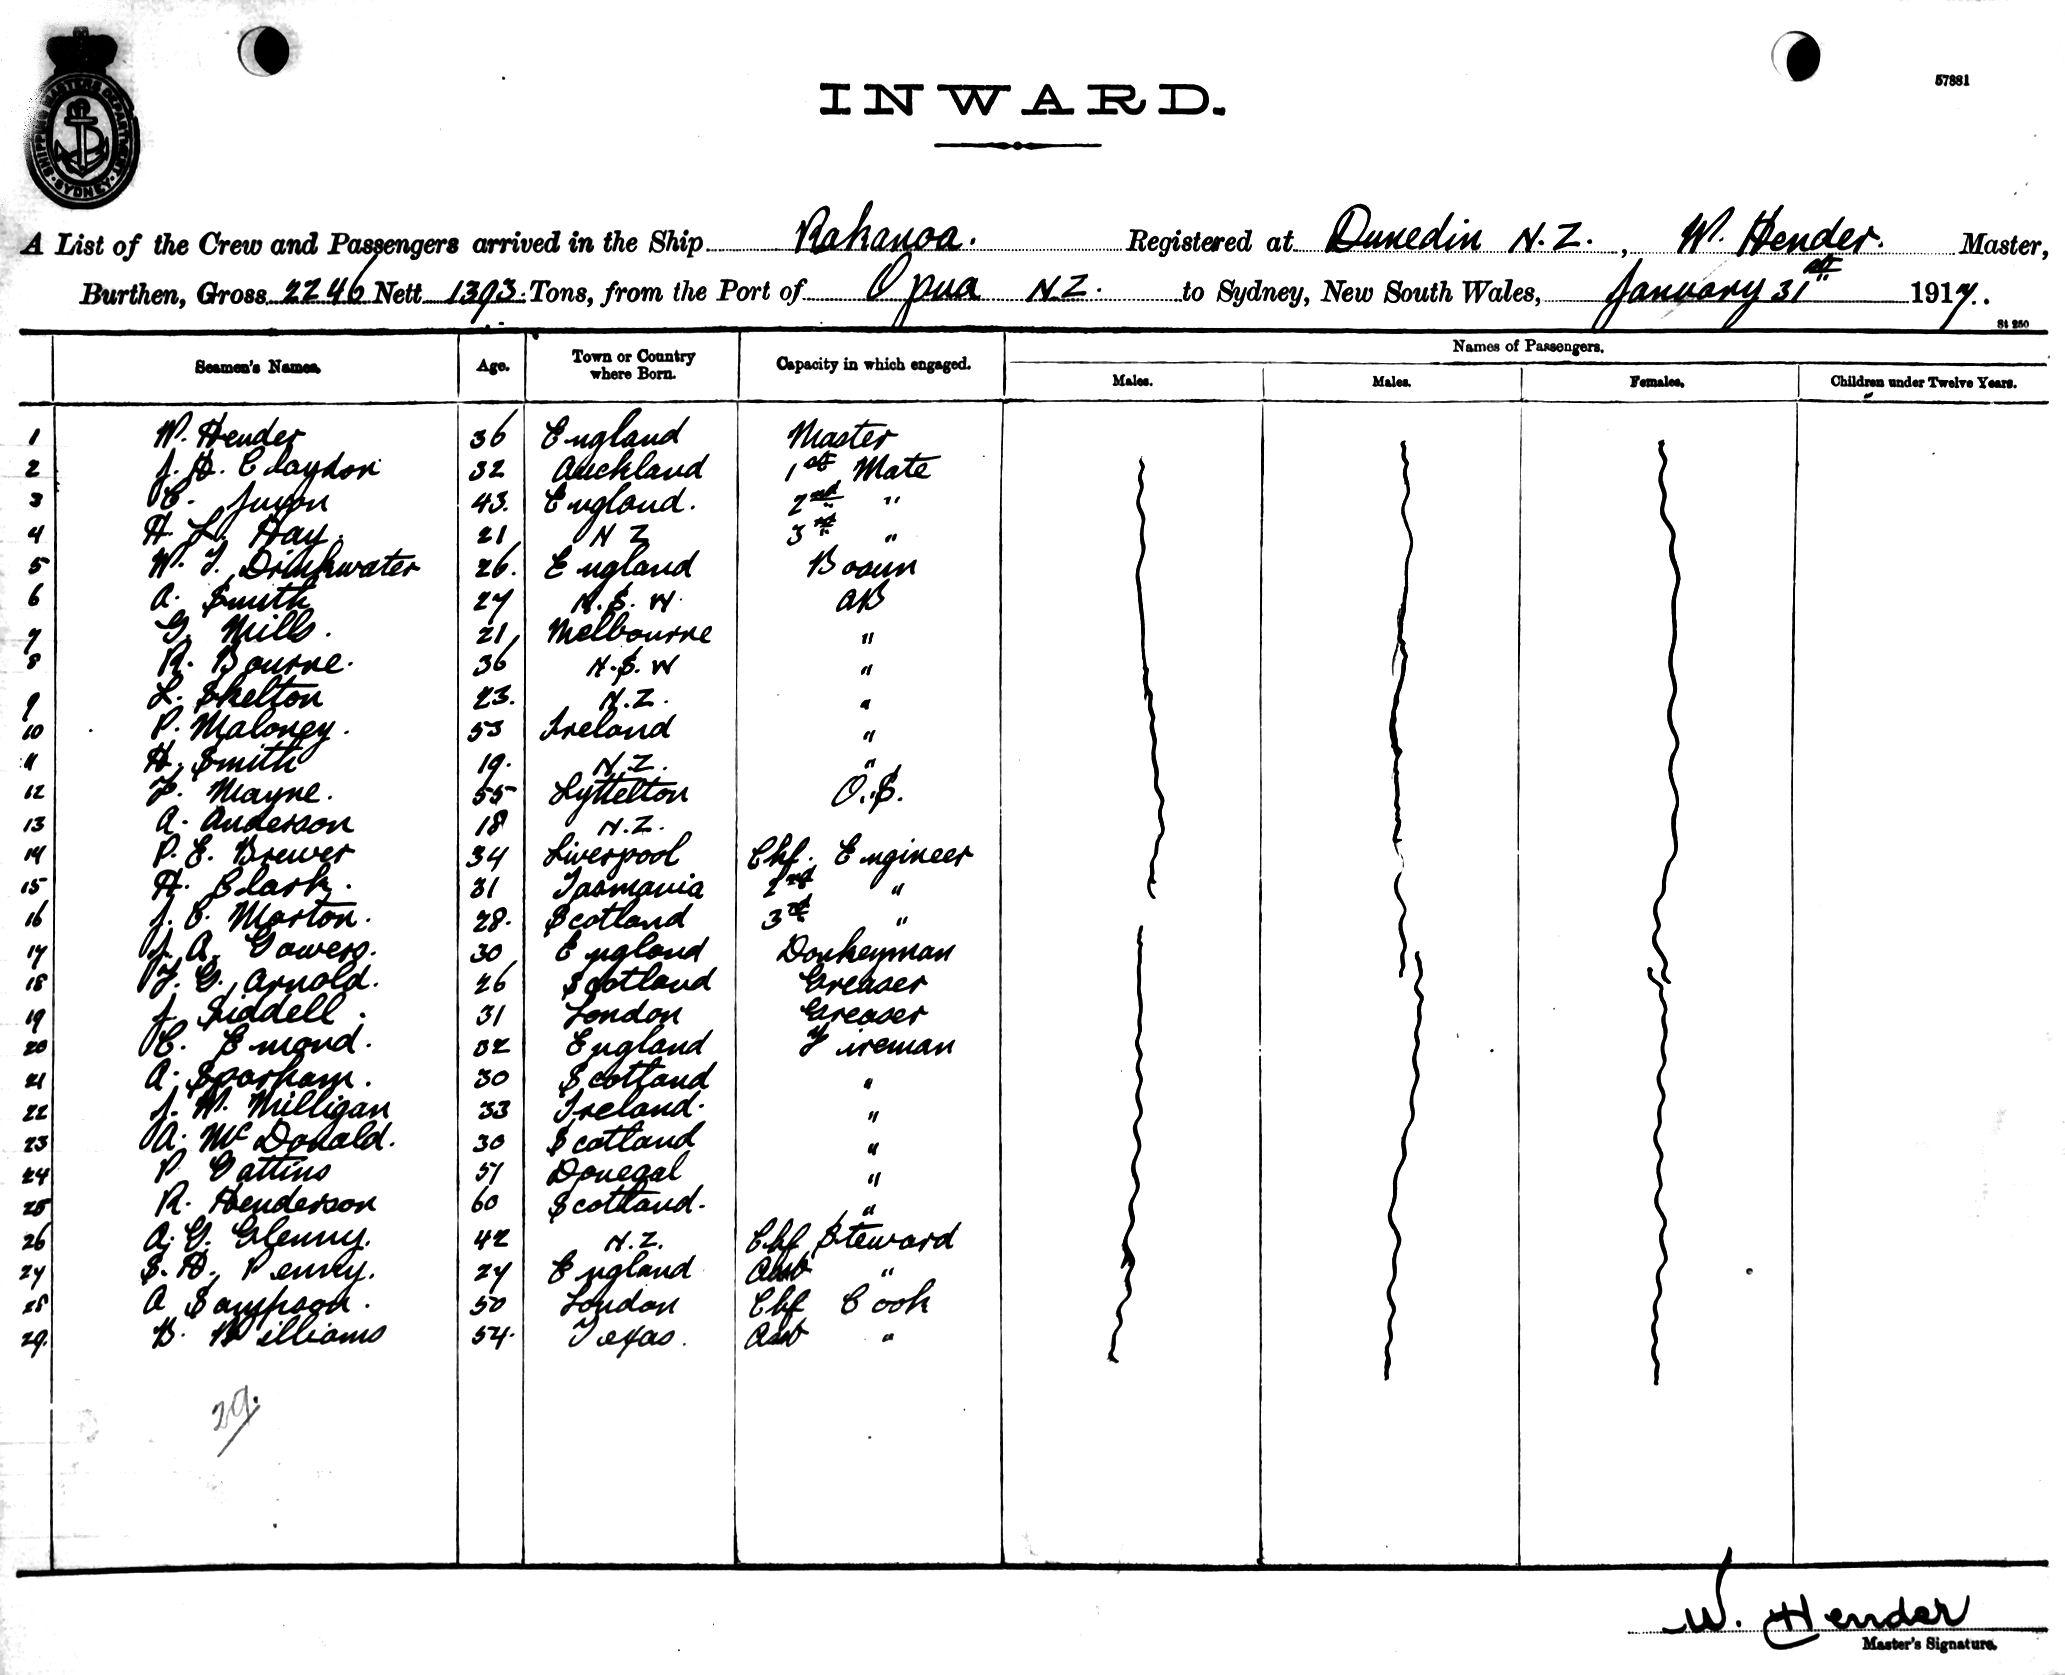 SHIPPING MASTERS DEPARTMENT SYDNEY
57881
INWARD.
A List of the Crew and Passengers arrived in the Ship Rahanoa. Registered at Dunedin N.Z., W. Hender. Master,
Burthen, Gross 2246 Nett 1393 Tons, from the Port of Opua N.Z. to Sydney, New South Wales, January 31st 1917.
St 250
Seamen's Names. Age. Town or Country where Born. Capacity in which engaged. Names of Passengers.
Males. Males. Females. Children under Twelve Years.
1 W. Hender 36 England Master
2 J. H. Claydon 32 Auckland 1st Mate
3 C. Juxon 43. England. 2nd "
4 H. L. Hay. 21 N Z 3rd "
5 W. J. Drinkwater 26. England Bosun
6 A. Smith 27 N.S.W. AB
7 G. Mills. 21 Melbourne "
8 R. Bourne. 36 N.S.W "
9 L. Skelton 23. N.Z. "
10 P. Maloney. 53 Ireland "
11 H. Smith 19. N.Z. "
12 F. Mayne. 55 Lyttelton O.S.
13 A. Anderson 18 N.Z.
14 P. E. Brewer 34 Liverpool Chf. Engineer
15 H. Clark. 31 Tasmania 2nd "
16 J. C. Morton. 28. Scotland 3rd "
17 J. A. Gowers. 30 England Donkeyman
18 F. G. Arnold. 26 Scotland Greaser
19 J Siddell. 31 London Greaser
20 C. Emond. 32 England Fireman
21 A. Sparham. 30 Scotland "
22 J. W. Milligan 33 Ireland. "
23 A. McDonald. 30 Scotland "
24 P Gattins 51 Donegal "
25 R. Henderson 60 Scotland. "
26 A. G. Glenny. 42 N.Z. Chf Steward
27 S. H. Penny. 27 England Asst "
28 A Sampson. 50 London Chf Cook
29. B. Williams 54. Texas. Asst "
29.
W. Hender
Master's Signature.